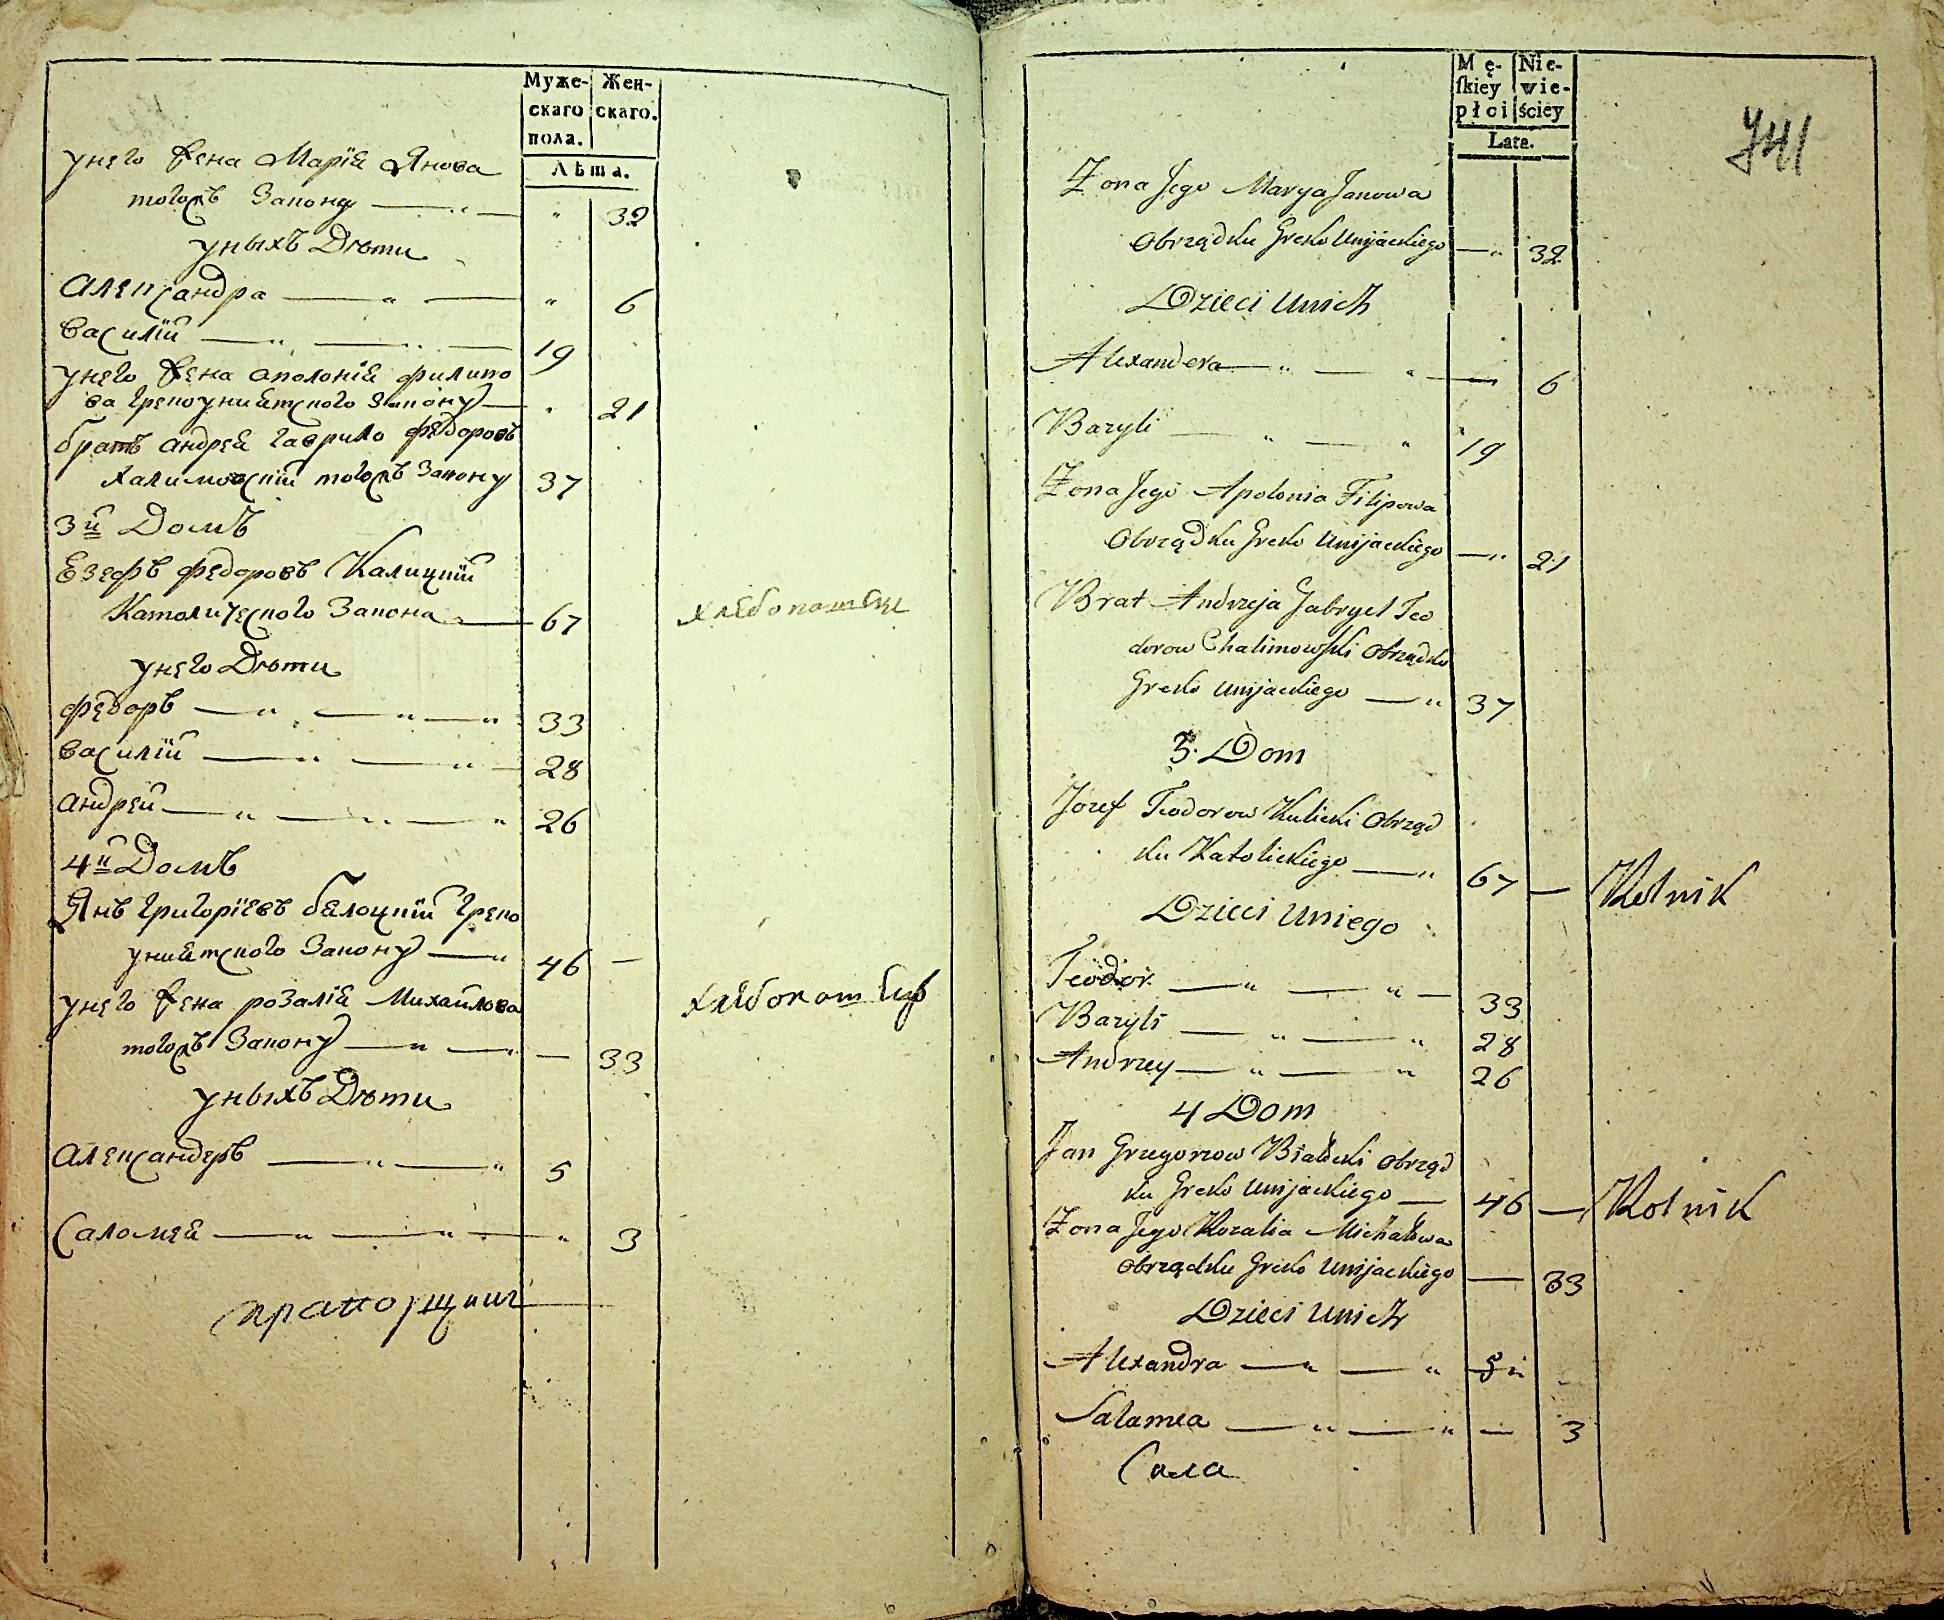 Муже- Жен-
скаго скаго.
пола.
Лѣта.
унего жена Марïя Янова
тогожъ Закону — " — " 32
уныхъ Дѣти
Александра — " — " 6
Василïй — " — " — 19
унего жена аполонïя филипо
ва грекоуниятского Закону — " 21
братъ андрей гаврило федоровъ
халимовскïй тогожъ Закону 37
3й Домъ
Езефъ федоровъ Калицкïй
Католического Закона — 67 хлебопашец
унего Дѣти
федоръ — " — " — " 33
Василïй — " — " — 28
андрей — " — " — " 26
4й Домъ
Янъ григорïевъ белоцкïй греко
униятского Закону — " 46 —
унего жена розалïя Михайлова хлебопашецъ
тогожъ Закону — " — " — 33
уныхъ Дѣти
александеръ — " — " 5
Саломея — " — " — " 3
прапорщикъ
Mę- Nie-
ſkiey wie-
płci ściey
Lata.
741
Zona Jego Marya Janowa
Obrządku Greko Unijackiego — " 32
Dzieci Unich
Alexandera — " — " — 6
Bazyli — " — " 19
Zona Jego Apolonia Filipowa
Obrządku Greko Unijackiego — " 21
Brat Andrzeja Gabryel Teo
dorow Chalimowſki Obrządku
Greko Unijackiego — " 37
3. Dom
Jozef Teodorow Kulicki Obrząd
ku Katolickiego — " 67 — Rolnik
Dzieci Uniego
Teodor — " — " — 33
Bazyli — " — " 28
Andrzey — " — " 26
4 Dom
Jan Grzegorzow Białocki Obrząd
ku Greko Unijackiego — 46 — Rolnik
Zona Jego Rozalia Michałowa
Obrządku Greko Unijackiego — 33
Dzieci Unich
Alexandra — " — " 5 "
Salamea — " — " — 3
Сала